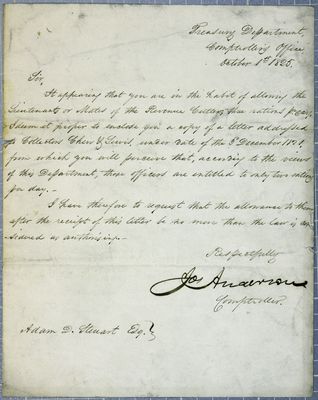 Treasury Department,
Comptrollers Office
October 1st 1825.
Sir,
It appearing that you are in the habit of allowing the
Lieutenants or Mates of the Revenue Cutters three rations p day,
I deem it proper to enclose you a copy of a letter addressed
to Collectors Chew & Lewis, under date of the 3d December 1821,
from which you will perceive that, according to the views
of this Department, those officers are entitled to only two rations
per day.
I have therefore to request that the allowance to them
after the receipt of this letter be no more than the law is con
sidered as authorising.
Respectfully
Jos Anderson
Comptroller.
Adam D. Steuart Esq.